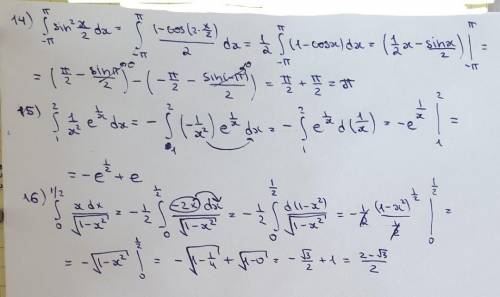 14) ∫_{-π}^{π} sin² x/2 dx = ∫_{-π}^{π} (1-cos(2·x/2))/2 dx = 1/2 ∫_{-π}^{π} (1-cosx)dx = (1/2 x - sinx/2) |_{-π}^{π} =
= (π/2 - sinπ/2)⁰ - (-π/2 - sin(-π)/2)⁰ = π/2 + π/2 = π
15) ∫_{1}^{2} 1/x² e^{1/x} dx = - ∫_{1}^{2} (-1/x²) e^{1/x} dx = - ∫_{1}^{2} e^{1/x} d(1/x) = -e^{1/x} |_{1}^{2} =
= -e^{1/2} + e
16) ∫_{0}^{1/2} x dx/√(1-x²) = -1/2 ∫_{0}^{1/2} -2x dx/√(1-x²) = -1/2 ∫_{0}^{1/2} d(1-x²)/√(1-x²) = -1/2 (1-x²)^{1/2}/(1/2) |_{0}^{1/2} =
= -√(1-x²) |_{0}^{1/2} = -√(1-1/4) + √(1-0) = -√3/2 + 1 = (2-√3)/2